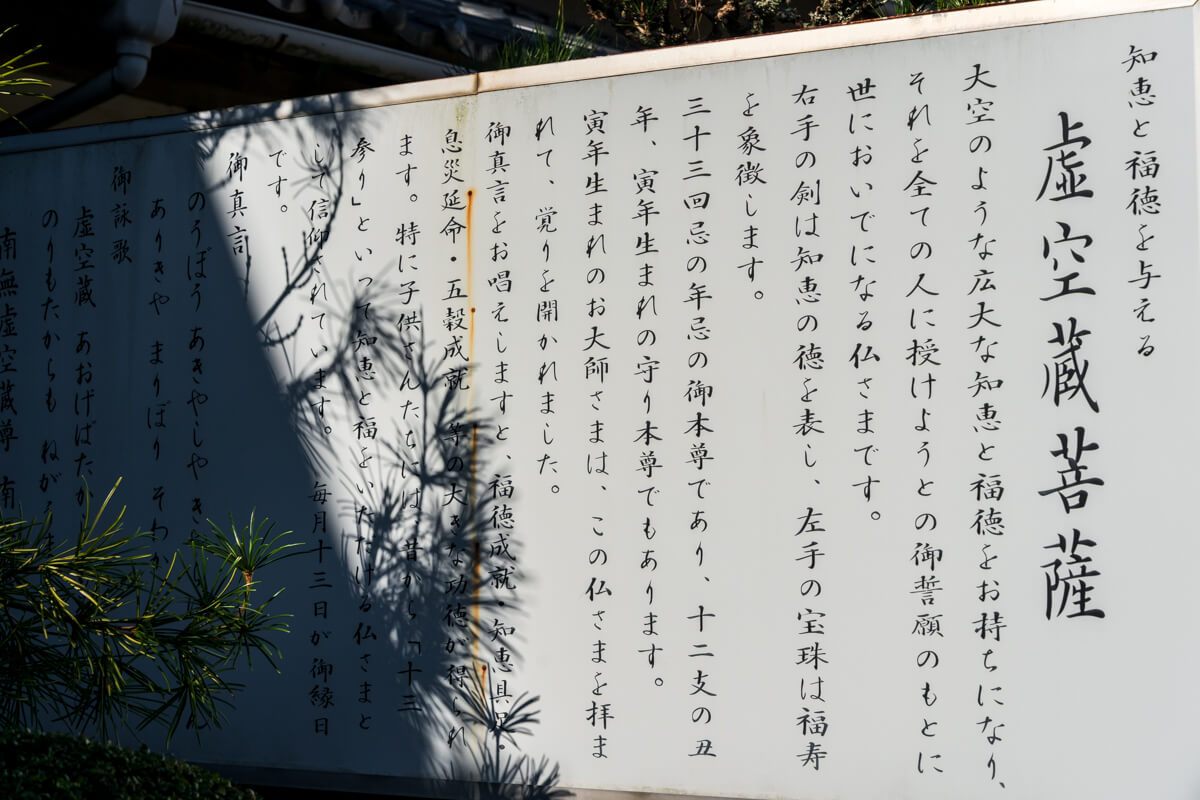 知恵と福徳を与える
虚空蔵菩薩
大空のような広大な知恵と福徳をお持ちになり、
それを全ての人に授けようとの御誓願のもとに
世においでになる仏さまです。
右手の剣は知恵の徳を表し、左手の宝珠は福寿
を象徴します。
三十三回忌の年忌の御本尊であり、十二支の丑
年、寅年生まれの守り本尊でもあります。
寅年生まれのお大師さまは、この仏さまを拝ま
れて、覚りを開かれました。
御真言をお唱えしますと、福徳成就・知恵具足・
息災延命・五穀成就 等の大きな功徳が得られ
ます。特に子供さんたちには、昔から「十三
参り」といって知恵と福をいただける仏さまと
して信仰されています。毎月十三日が御縁日
です。
御真言
のうぼう あきやしや きや
ありきや まりぼり そわか
御詠歌
虚空蔵 あおげばたか
のりもたからも ねが
南無虚空蔵尊 南